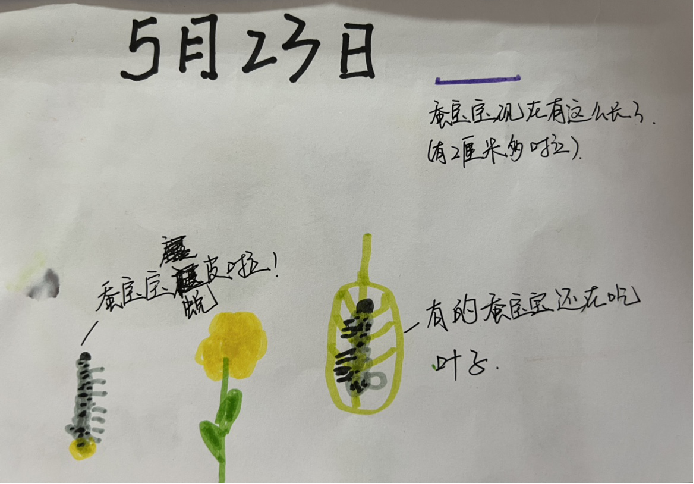 5月23日
蚕宝宝现在有这么长了.
(有2厘米多啦).
蚕宝宝蜕皮啦!
有的蚕宝宝还在吃
叶子.